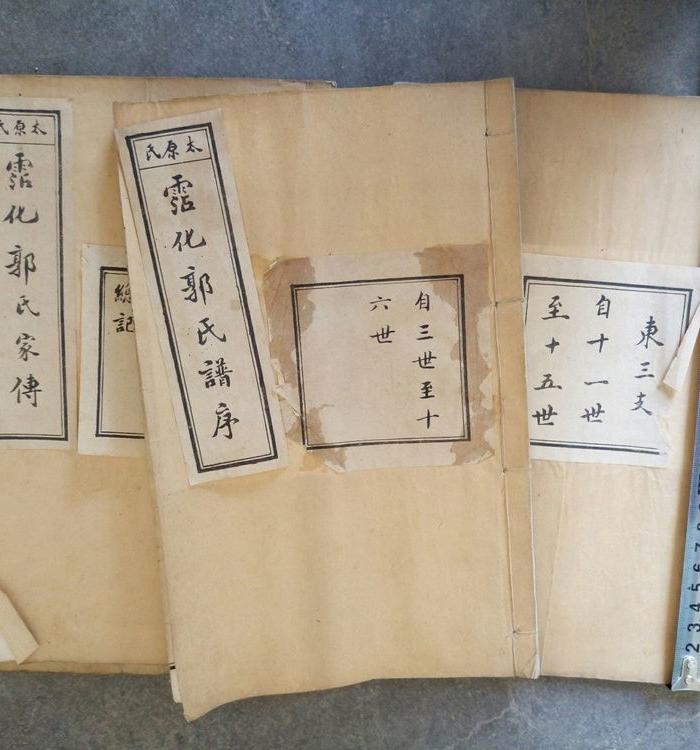 太原氏
霑化郭氏家傳
總記
太原氏
霑化郭氏譜序
自三世至十
六世
東三支
自十一世
至十五世
2 3 4 5 6 7